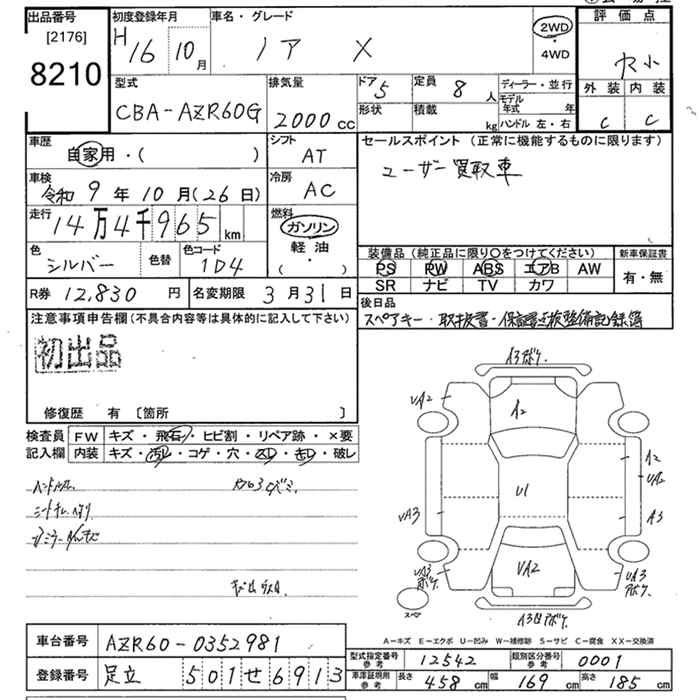 出品番号
[2176]
8210
初度登録年月
H16 10月
車名・グレード
ノア X
2WD
・
4WD
評価点
外装 内装
C C
型式
CBA-AZR60G
排気量
2000cc
ドア 5
形状
定員 8人
積載 kg
ディーラー・並行
モデル年式 年
ハンドル 左・右
車歴
自家用・( )
シフト
AT
セールスポイント(正常に機能するものに限ります)
ユーザー買取車
車検
令和9年10月(26日)
冷房
AC
走行
14万4千965km
燃料
ガソリン
軽油
・( )
色
シルバー
色替
色コード
1D4
装備品(純正品に限り○をつけてください)
PS PW ABS エアB AW
SR ナビ TV カワ
新車保証書
有・無
R券 12,830円
名変期限 3月31日
後日品
スペアキー・取扱書・保証書・点検整備記録簿
注意事項申告欄(不具合内容等は具体的に記入して下さい)
初出品
修復歴 有〔箇所 〕
検査員記入欄
FW キズ・飛石・ヒビ割・リペア跡・×要
内装 キズ・汚レ・コゲ・穴・スレ・キレ・破レ
A3
UA2
A2
A2
U1
UA3
A3
UA2
UA3
UA3
スペア
A-キズ E-エクボ U-凹み W-補修跡 S-サビ C-腐食 XX-交換済
車台番号 AZR60-0352981
登録番号 足立 501せ6913
型式指定番号 参考 12542
類別区分番号 参考 0001
車庫証明用 参考 長さ 458cm 幅 169cm 高さ 185cm